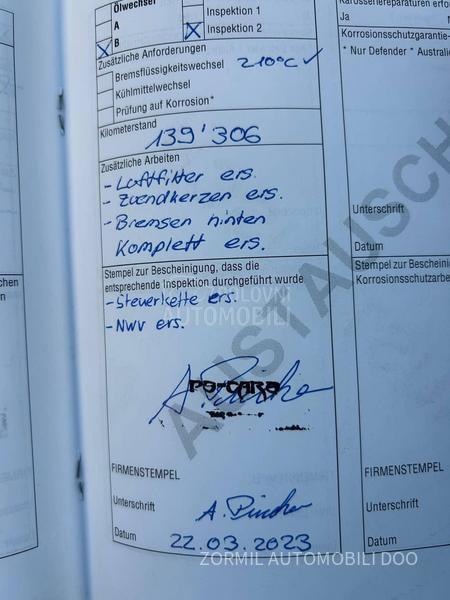 Ölwechsel
A
B
Inspektion 1
Inspektion 2
Zusätzliche Anforderungen
Bremsflüssigkeitswechsel 210°C ✓
Kühlmittelwechsel
Prüfung auf Korrosion*
Kilometerstand
139'306
Zusätzliche Arbeiten
- Luftfilter ers.
- Zuendkerzen ers.
- Bremsen hinten
Komplett ers.
Stempel zur Bescheinigung, dass die
entsprechende Inspektion durchgeführt wurde
- Steuerkette ers.
- NWV ers.
AUTOMOBILI
FIRMENSTEMPEL
Unterschrift
Datum 22.03.2023
Karosseriereparaturen erfo
Ja
Korrosionsschutzgarantie-
* Nur Defender * Australi
AUSTAUSCH
Unterschrift
Datum
Stempel zur Bescheini
Korrosionsschutzarbe
FIRMENSTEMPEL
Unterschrift
Datum
ZORMIL AUTOMOBILI DOO